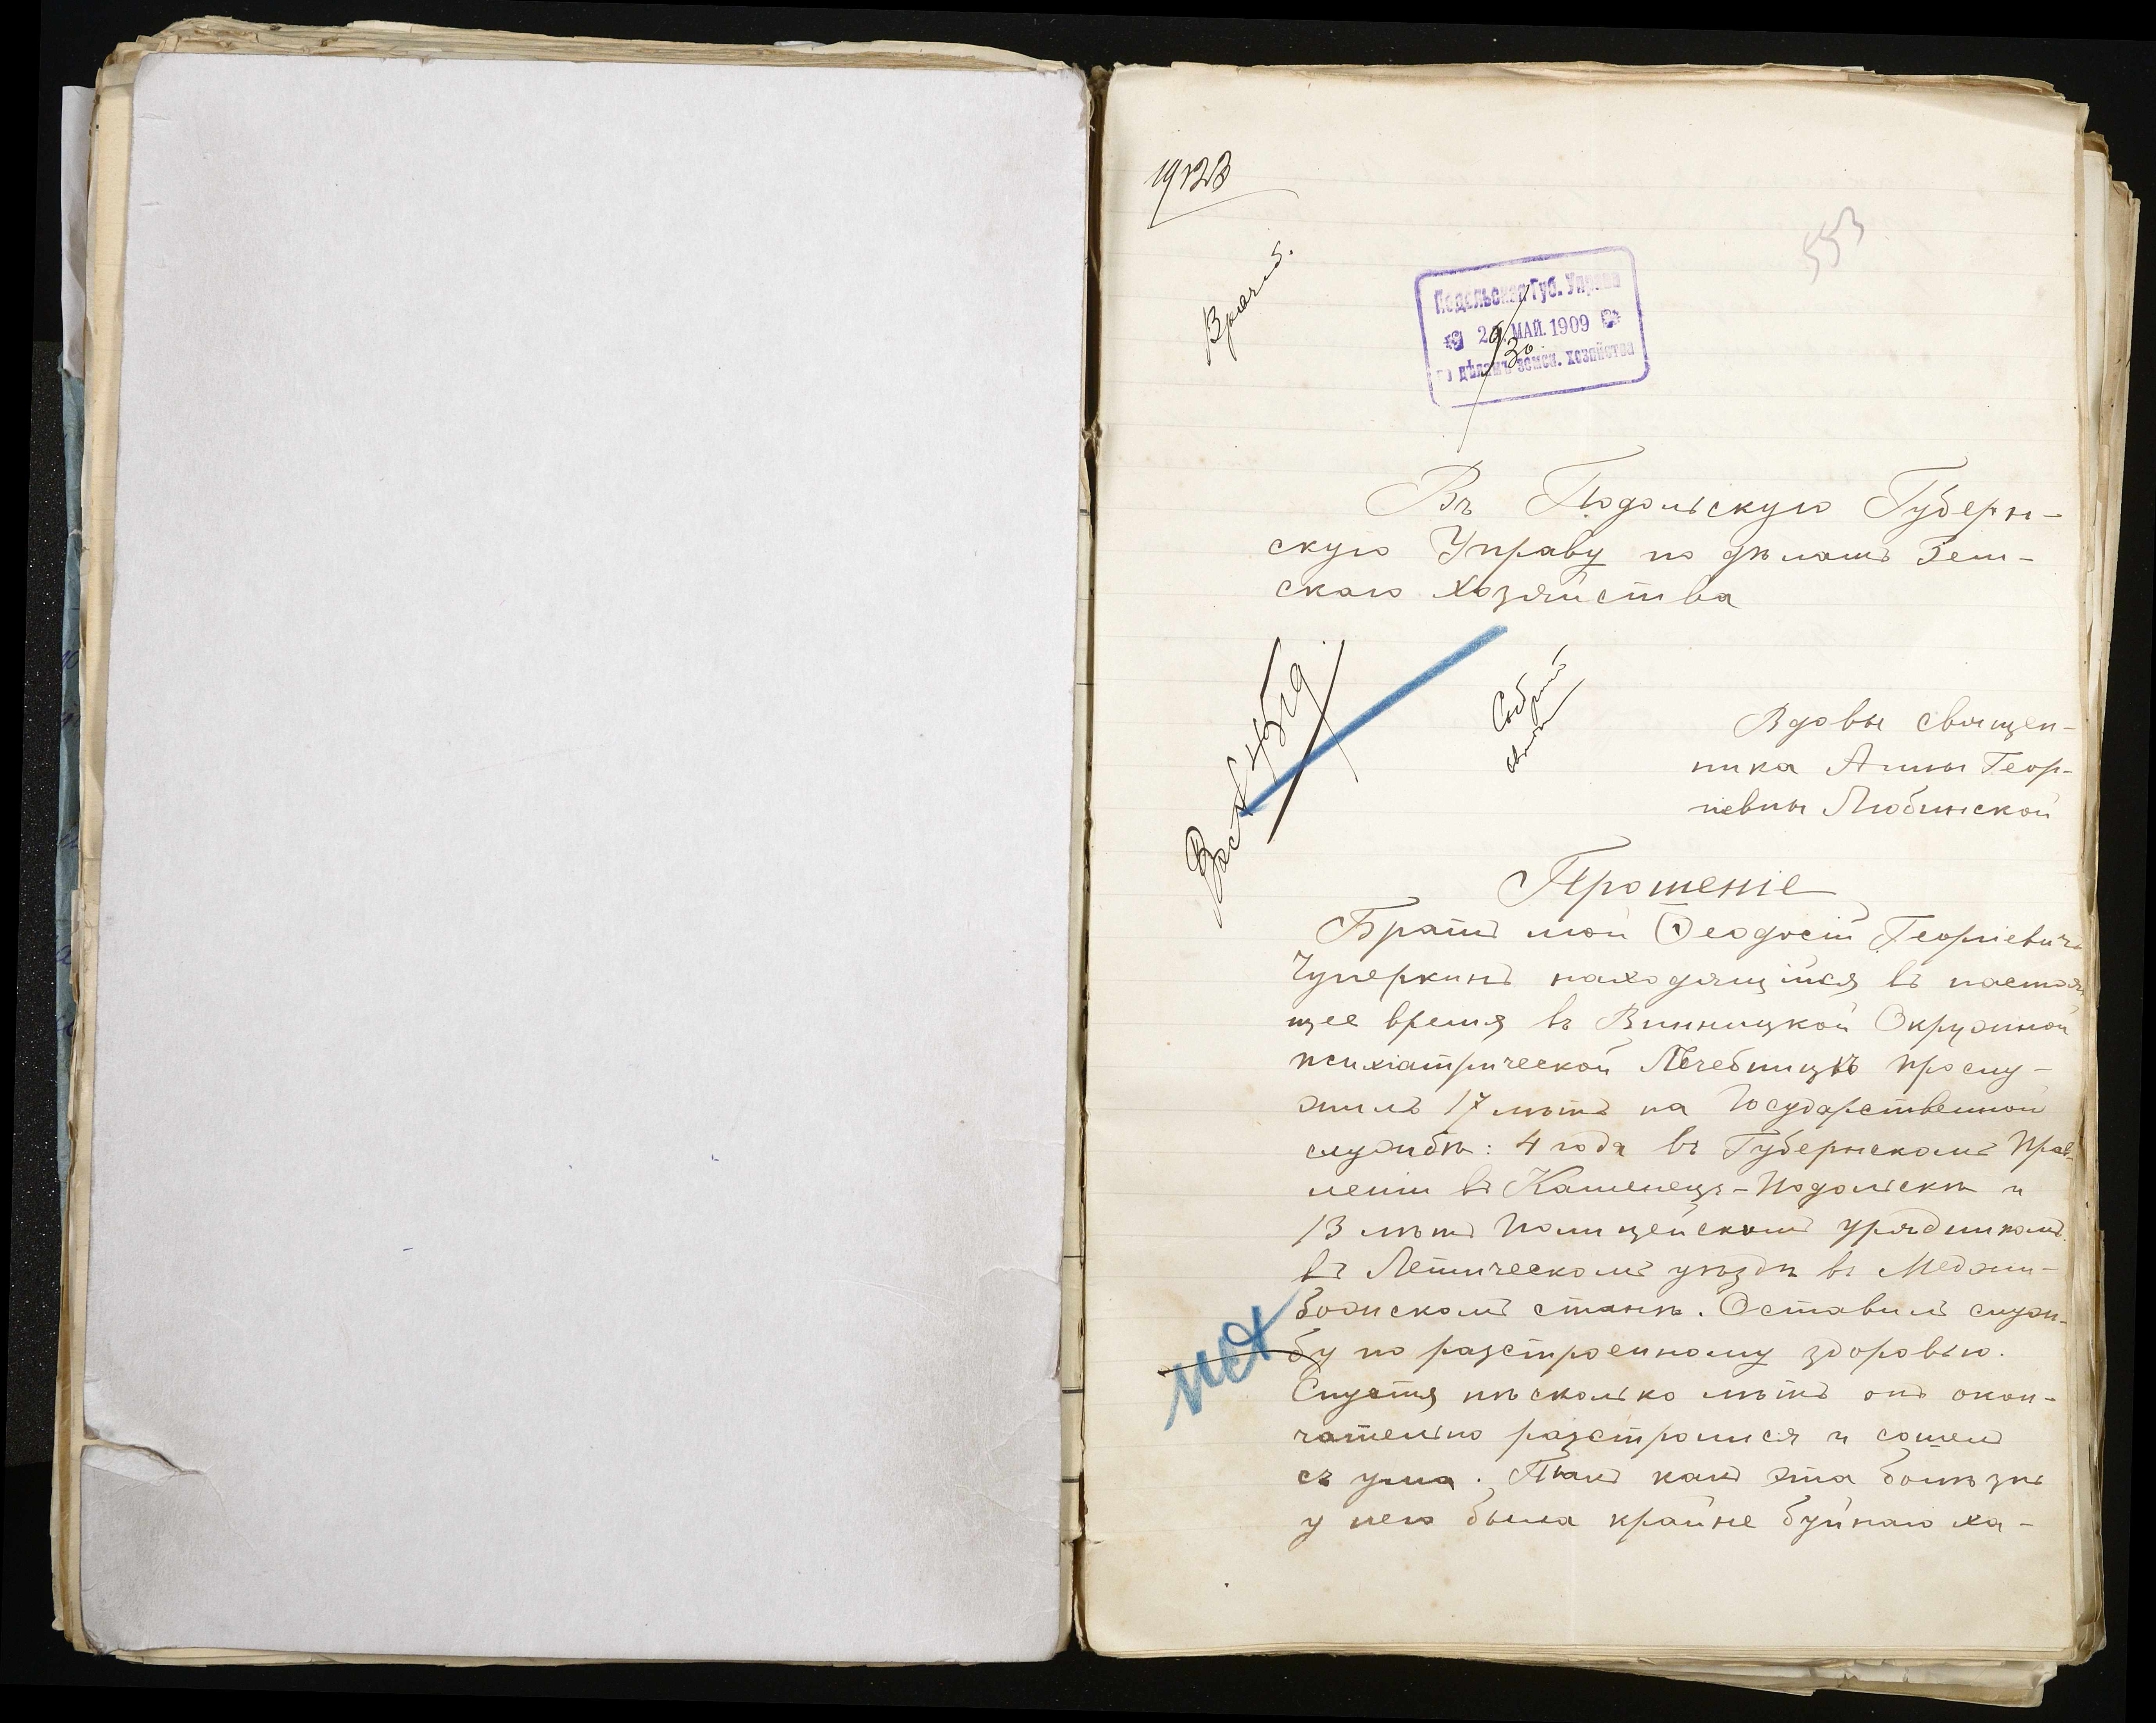 553
Подольская Губ. Управа
МАЙ. 1909
по дѣламъ земск. хозяйства
Въ Подольскую Губерн-
скую Управу по дѣламъ Зем-
скаго хозяйства
Вдовы священ-
ника Анны Геор-
гіевны Любинской
Прошеніе
Братъ мой Ѳеодосій Георгіевичъ
находящійся въ настоя-
щее время въ Винницкой Окружной
психіатрической Лѣчебницѣ прослу-
жилъ 17 лѣтъ на Государственной
службѣ: 4 года въ Губернскомъ Прав-
леніи въ Каменецъ-Подольскѣ и
13 лѣтъ Полицейскимъ урядникомъ
въ Летическомъ уѣздѣ въ Меджи-
божскомъ станѣ. Оставилъ служ-
бу по разстроенному здоровью.
Спустя нѣсколько лѣтъ онъ окон-
чательно разстроился и сошелъ
съ ума. Такъ какъ эта болѣзнь
у него была крайне буйнаго ха-